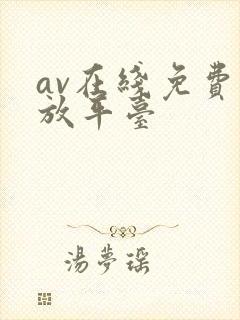 av在綫免費
放平臺
湯夢瑶